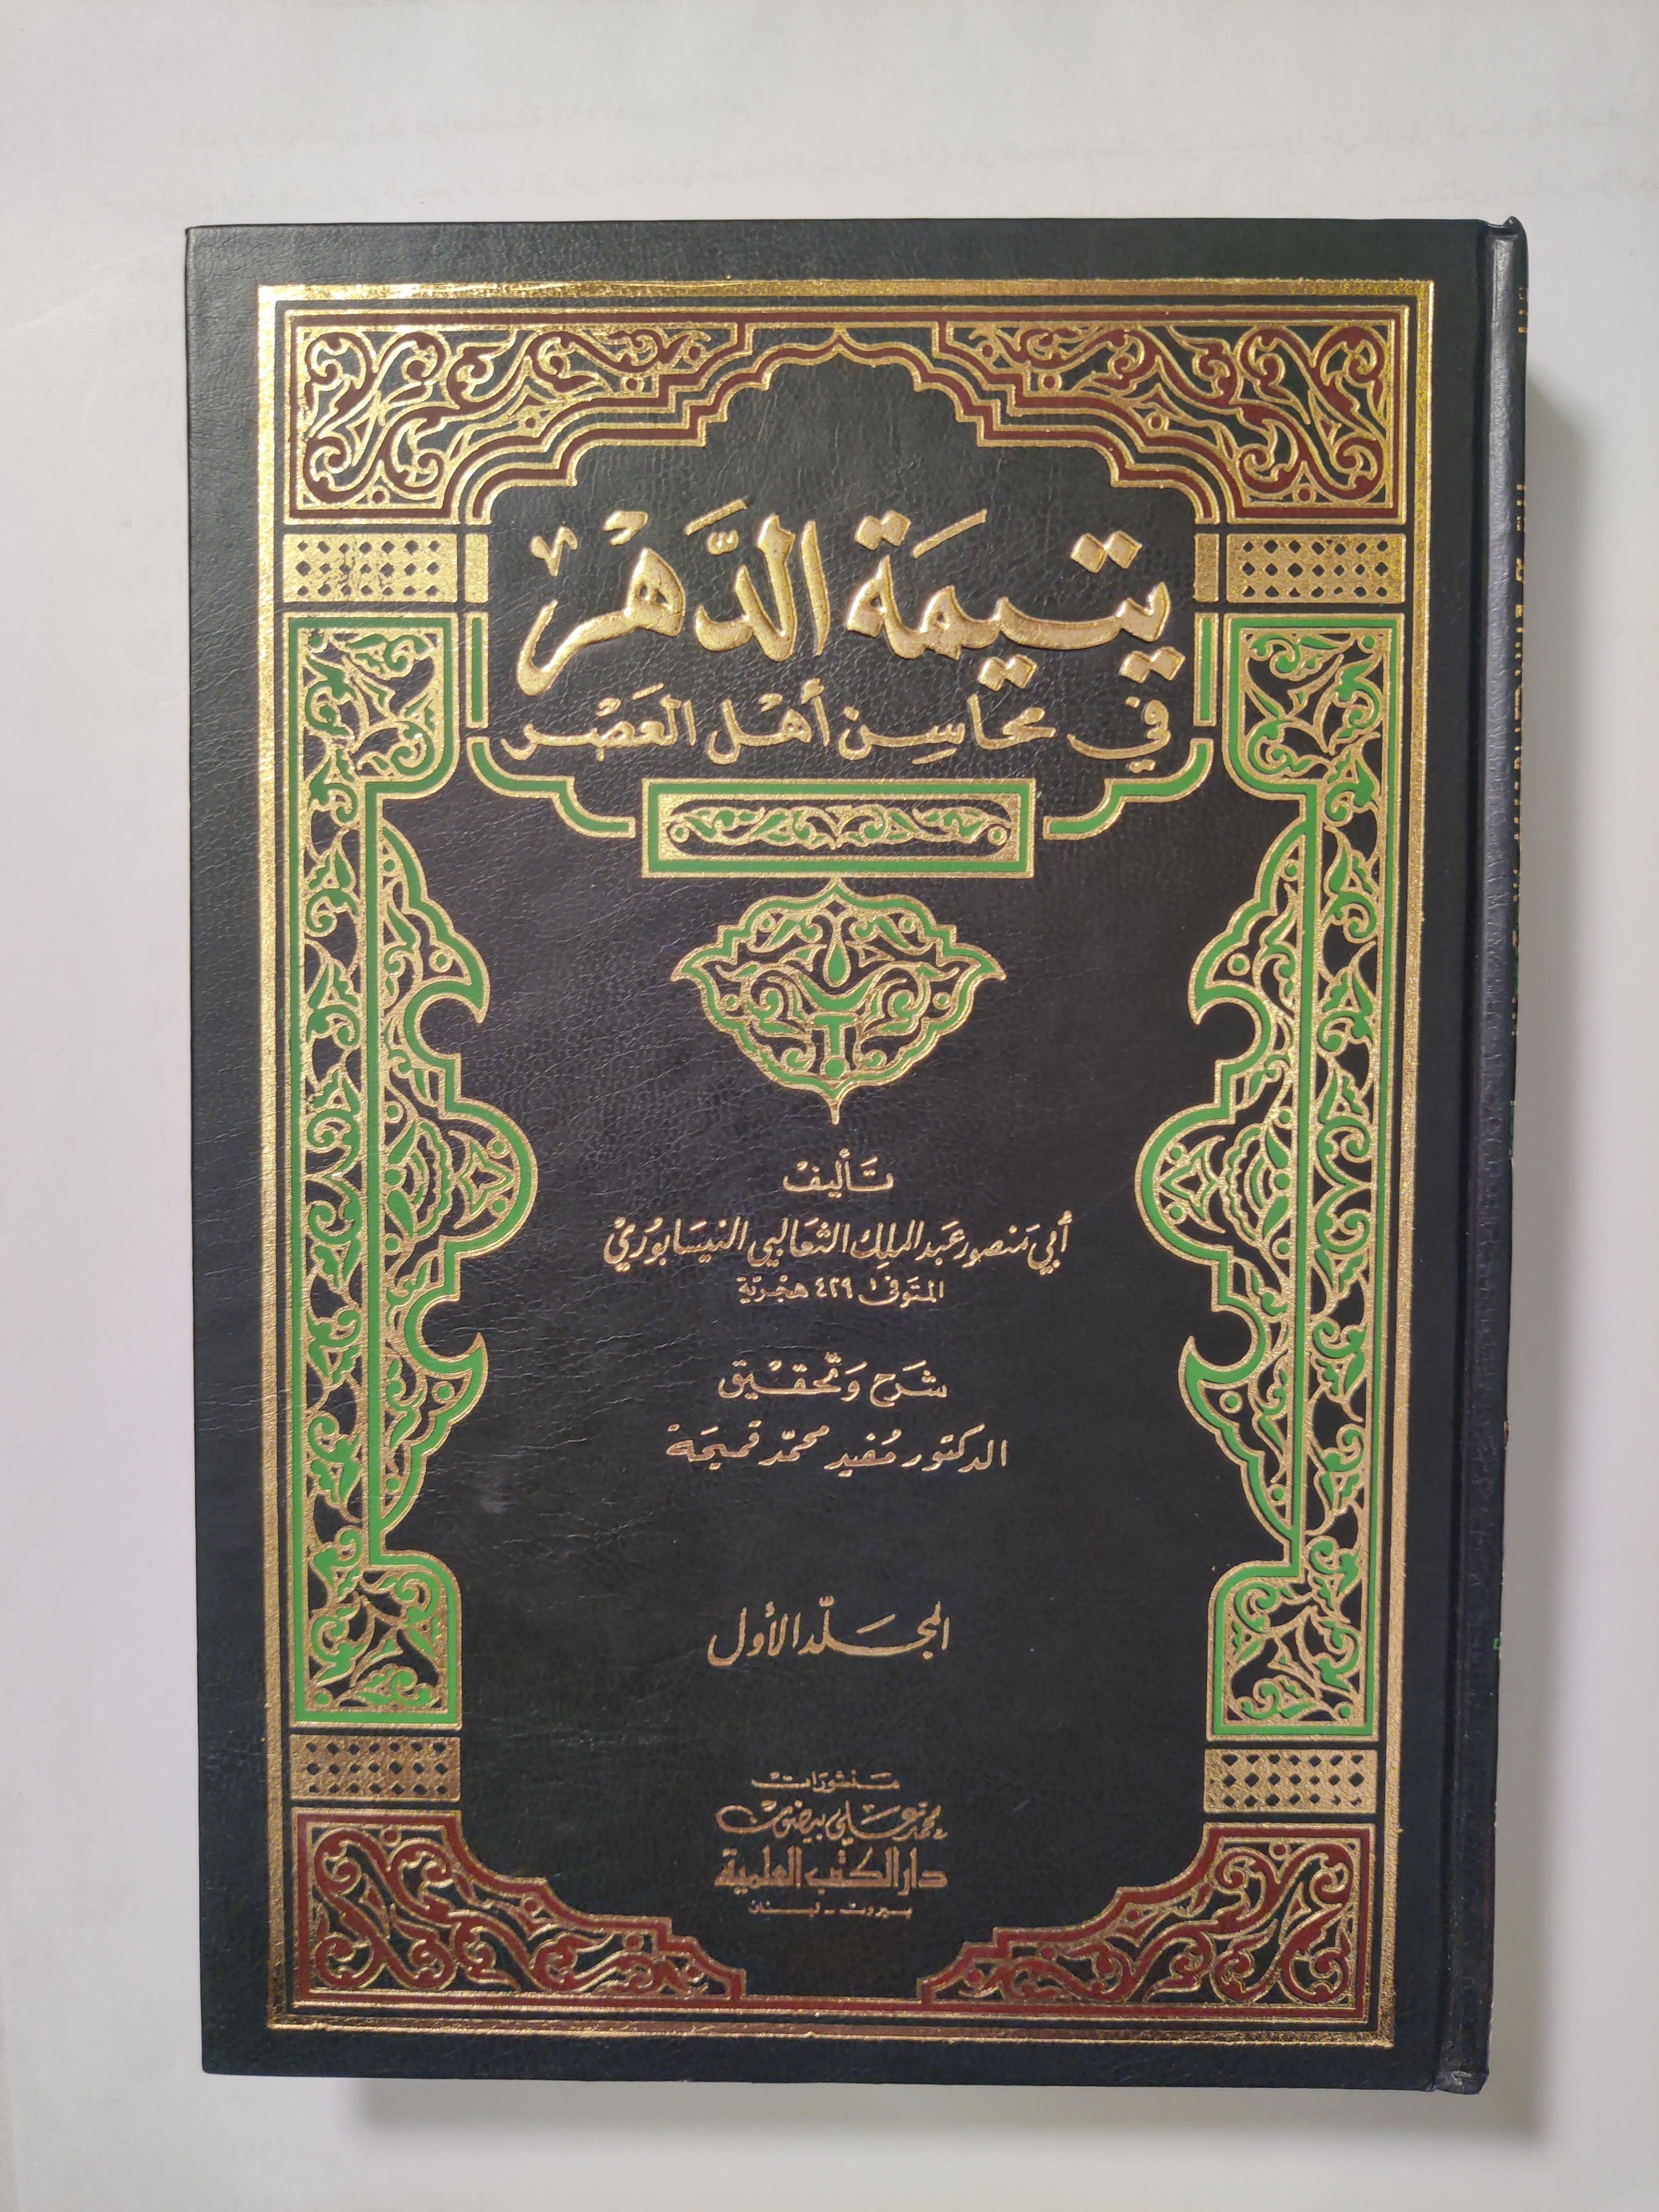 يتيمَة الدَّهرْ
في محاسِن أهْل العَصْر
تَأليفْ
أبي مَنصور عَبد الملِك الثعَالبي النيسَابوُريْ
المتوَفى ٤٢٩ هجْريّة
شَرح وَتحقيق
الدكتور مُفيد محمّد قميحَة
المجَلّد الأول
منشورات
محمد علي بيضون
دار الكتب العلمية
بيروت - لبنان